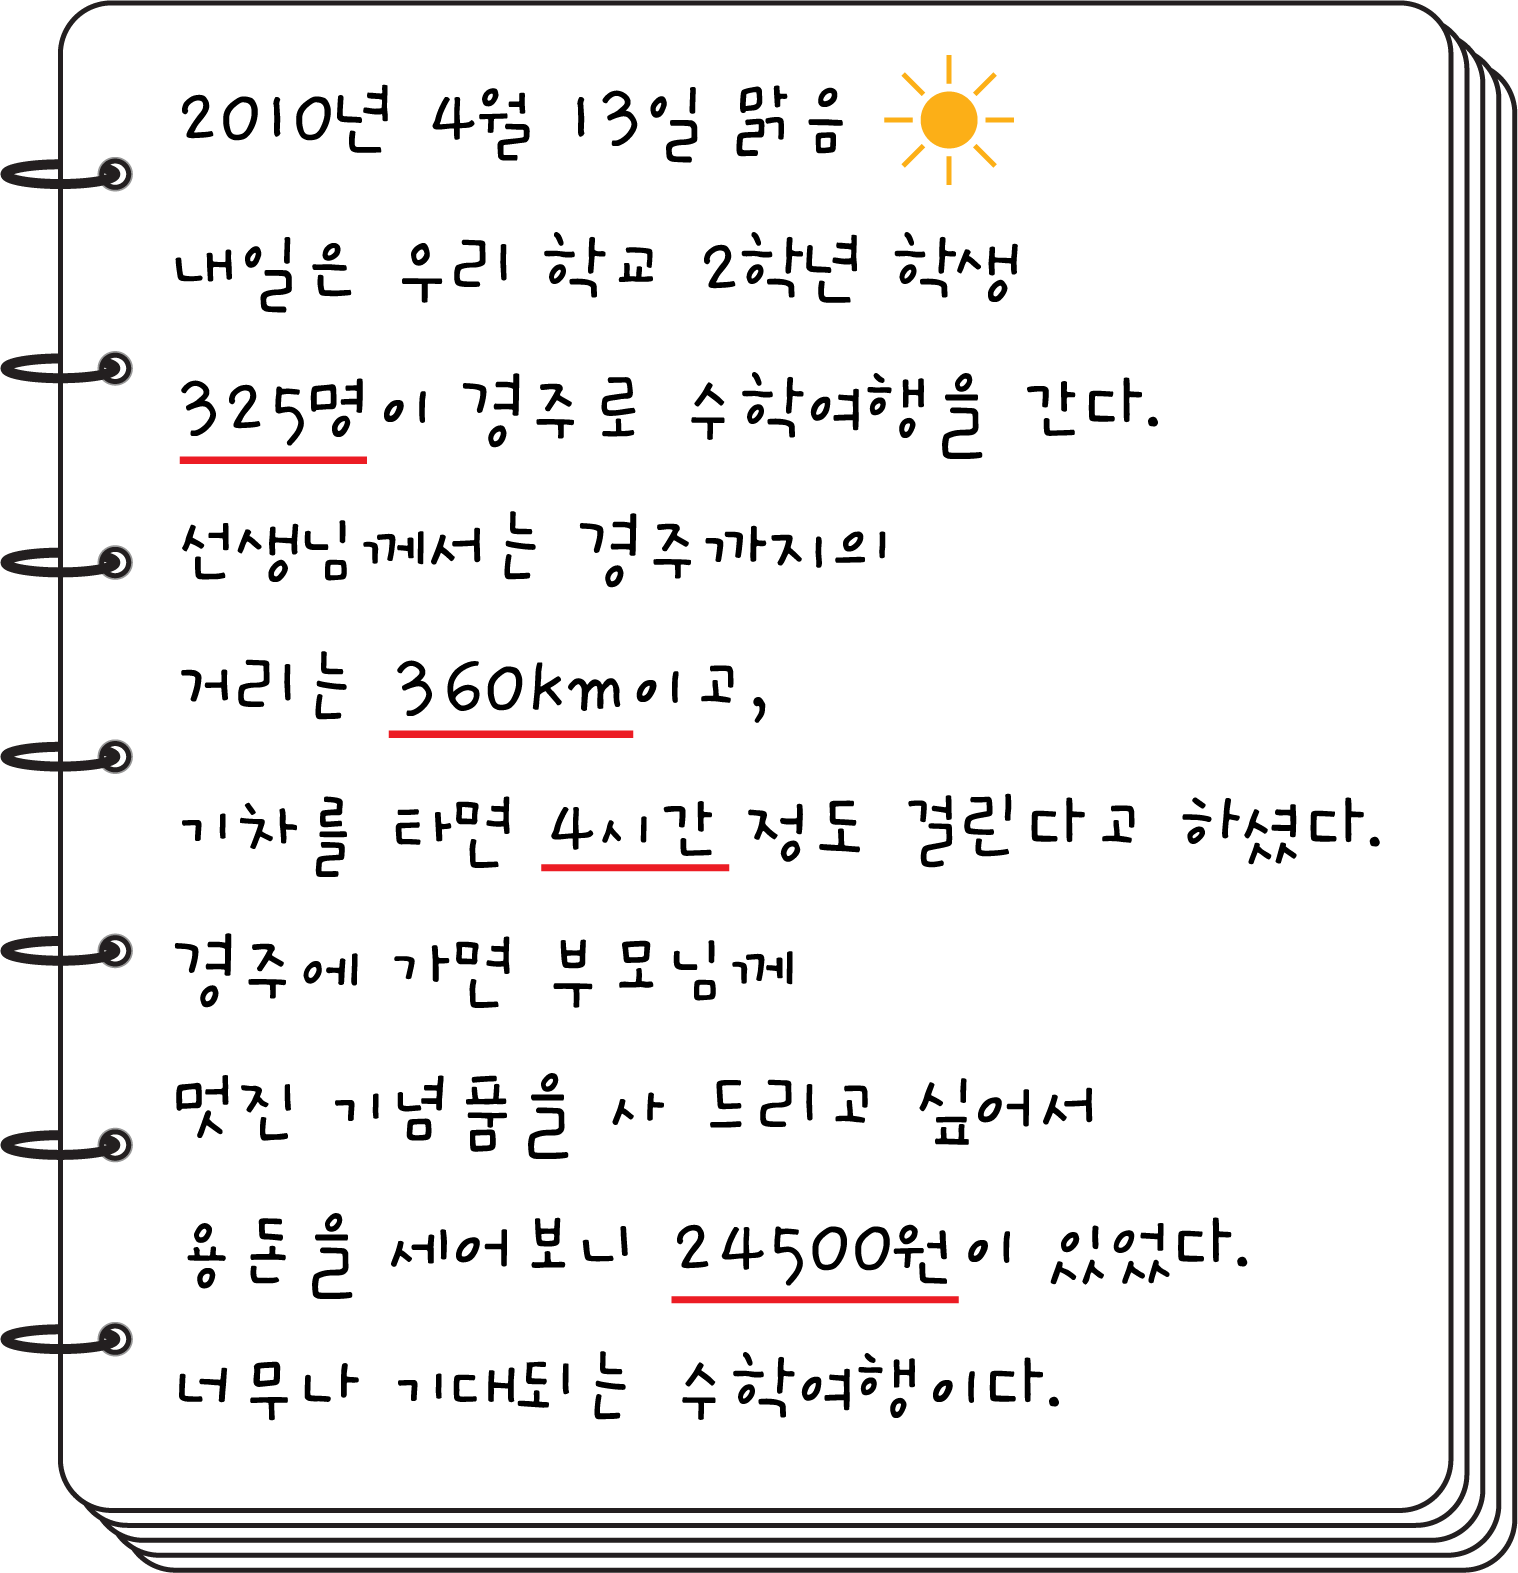 2010년 4월 13일 맑음
내일은 우리 학교 2학년 학생
325명이 경주로 수학여행을 간다.
선생님께서는 경주까지의
거리는 360km이고,
기차를 타면 4시간 정도 걸린다고 하셨다.
경주에 가면 부모님께
멋진 기념품을 사 드리고 싶어서
용돈을 세어보니 24500원이 있었다.
너무나 기대되는 수학여행이다.